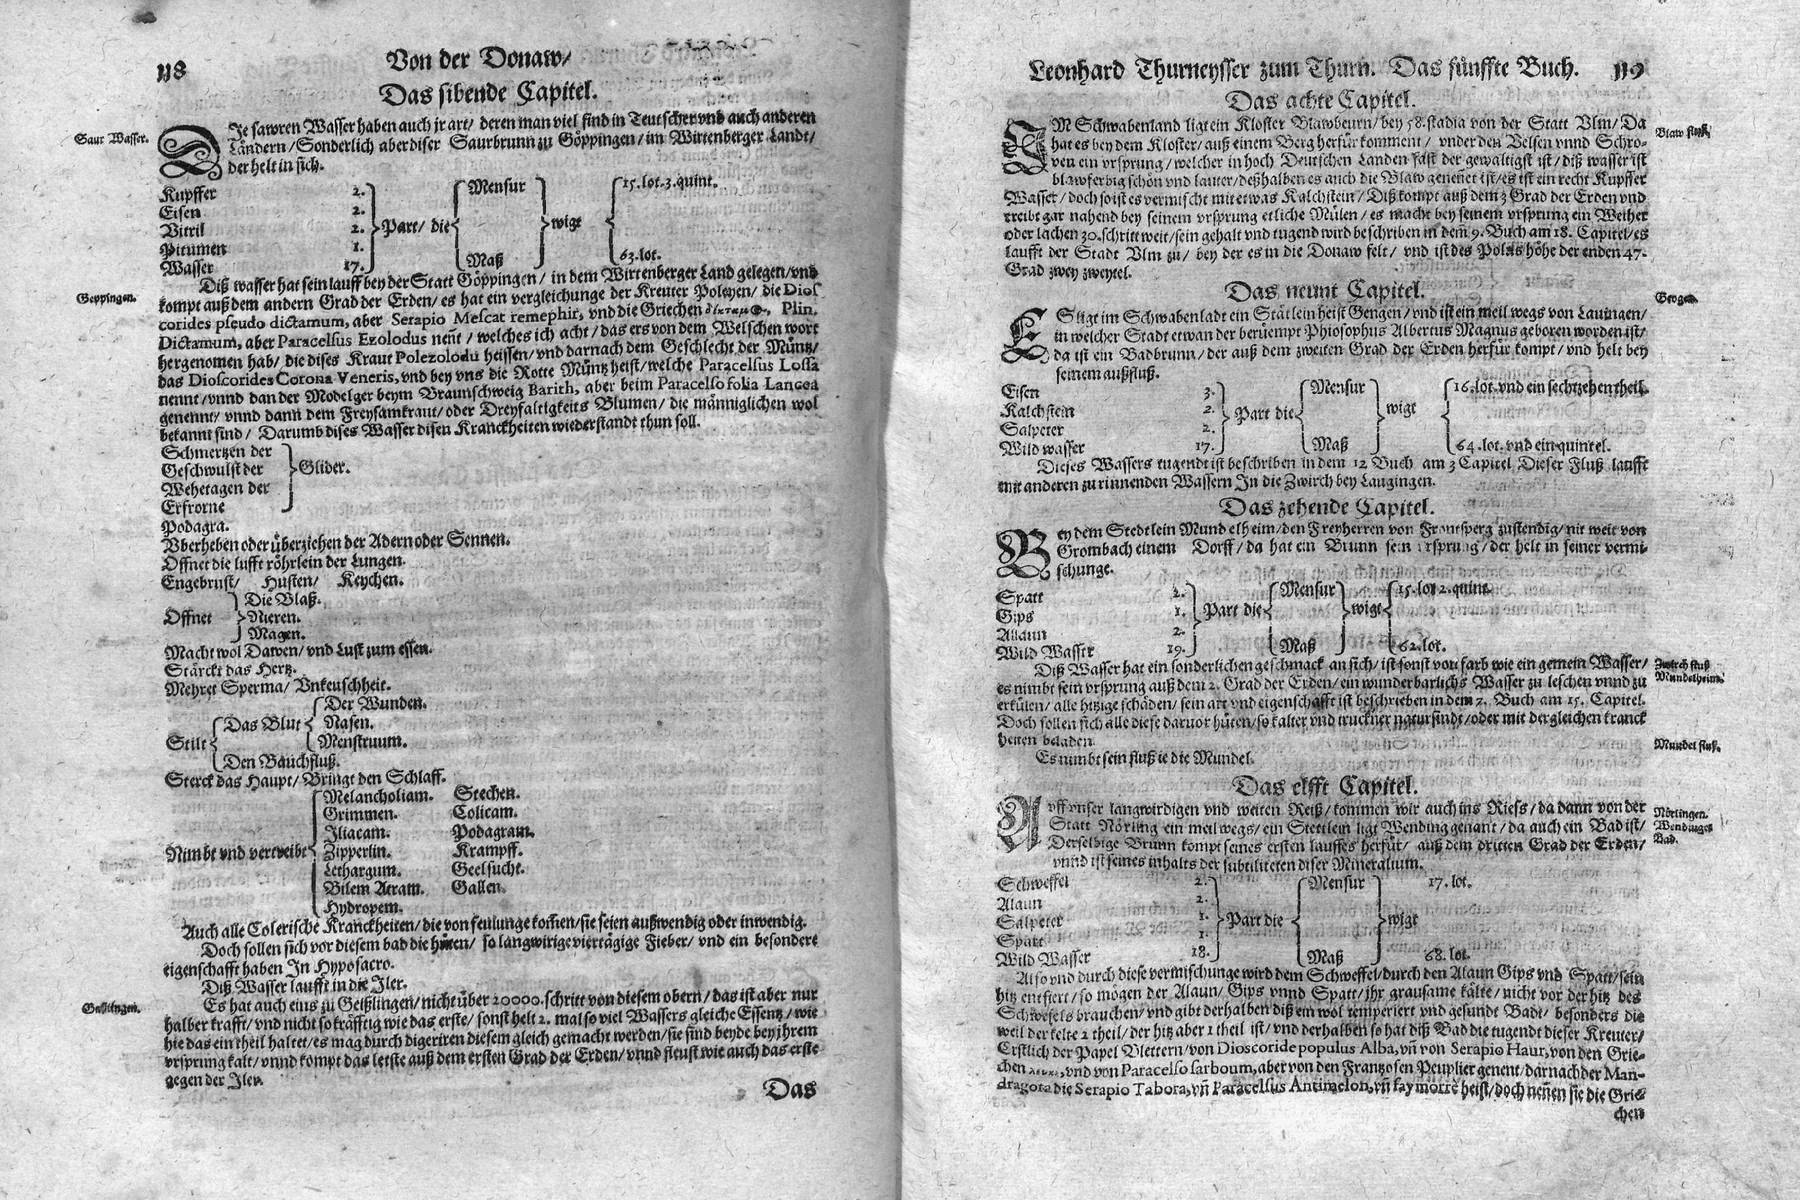 118
Von der Donaw/
Das sibende Capitel.
Saur Wasser.
DIe sawren Wasser haben auch jr art/ deren man viel find in Teutscher vnd auch anderen
Ländern/ Sonderlich aber diser Saurbrunn zu Göppingen/ im Wirtenberger Landt/
der helt in sich.
Kupffer 2.
Eisen 2.
Vitril 2.
Pitumen 1.
Wasser 17.
Part/ die
Mensur
Maß
wigt
15. lot. 3. quint.
63. lot.
Diß wasser hat sein lauff bey der Statt Göppingen/ in dem Wirtenberger Land gelegen/ vnd
Geppingen.
kompt auß dem andern Grad der Erden/ es hat ein vergleichung der Kreuter Poleyen/ die Dios
corides pseudo dictamum, aber Serapio Mescat remephir, vnd die Griechen Plin.
Dictamum, aber Paracelsus Ezolodus neñt/ welches ich acht/ das ers von dem Welschen wort
hergenomen hab/ die dises Kraut Polezolodu heissen/ vnd darnach dem Geschlecht der Müntz/
das Dioscorides Corona Veneris, vnd bey vns die Rotte Müntz heist/ welche Paracelsus Lossa
nennt/ vnnd dan der Modelger beym Braunschweig Barith, aber beim Paracelso folia Lancea
genennt/ vnnd dann dem Freysamkraut/ oder Dreyfaltigkeits Blumen/ die männiglichen wol
bekannt sind/ Darumb dises Wasser disen Kranckheiten widerstandt thun soll.
Schmertzen der
Geschwulst der
Wehetagen der
Erfrorne
Glider.
Podagra.
Vberheben oder überziehen der Adern oder Sennen.
Offnet die lufft röhrlein der Lungen.
Engebrust/ Husten/ Keychen.
Offnet
Die Blaß.
Nieren.
Magen.
Macht wol Dawen/ vnd Lust zum essen.
Stärckt das Hertz.
Mehret Sperma/ Vnkeuschheit.
Stilt
Das Blut
Der Wunden.
Nasen.
Menstruum.
Den Bauchfluß.
Sterck das Haupt/ Bringt den Schlaff.
Nimbt vnd vertreibt
Melancholiam. Stechen.
Grimmen. Colicam.
Iliacam. Podagram.
Zipperlin. Krampff.
Lethargum. Geelsucht.
Bilem Atram. Gallen.
Hydropem.
Auch alle Colerische Kranckheiten/ die von feulunge kom̃en/ sie seien außwendig oder inwendig.
Doch sollen sich vor diesem bad die hüten/ so langwirige viertägige Fieber/ vnd ein besondere
eigenschafft haben In Hyposacro.
Diß Wasser laufft in die Iler.
Es hat auch eins zu Geißlingen/ nicht über 20000. schritt von diesem obern/ das ist aber nur
Geißlingen.
halber krafft/ vnd nicht so kräfftig wie das erste/ sonst helt 2. mal so viel Wassers gleiche Essentz/ wie
hie das ein theil haltet/ es mag durch digeriren diesem gleich gemacht werden/ sie sind beyde bey jhrem
vrsprung kalt/ vnnd kompt das letste auß dem ersten Grad der Erden/ vnnd fleust wie auch das erste
gegen der Iler.
Das
Leonhard Thurneysser zum Thurn. Das fünffte Buch. 119
Das achte Capitel.
IM Schwabenland ligt ein Kloster Blawbeurn/ bey 58. stadia von der Statt Vlm/ Da
Blaw fluß.
hat es bey dem Kloster/ auß einem Berg herfür komment/ vnder den Velsen vnnd Schro-
ven ein vrsprung/ welcher in hoch Deutschen Landen fast der gewaltigst ist/ diß wasser ist
blawferbig schön vnd lauter/ deßhalben es auch die Blaw geneñet ist/ es ist ein recht Kupffer
Wasser/ doch so ist es vermischt mit etwas Kalchstein/ Diß kompt auß dem 3 Grad der Erden vnd
treibt gar nahend bey seinem vrsprung etliche Mülen/ es macht bey seinem vrsprung ein Weiher
oder lachen 30. schritt weit/ sein gehalt vnd tugend wird beschriben in dem 9. Buch am 18. Capitel/ es
laufft der Stadt Vlm zu/ bey der es in die Donaw felt/ vnd ist des Polus höhe der enden 47.
Grad zwey zweytel.
Das neunt Capitel.
ES ligt im Schwabenladt ein Stätlein heist Gengen/ vnd ist ein meil wegs von Lauingen/
in welcher Stadt etwan der berüempt Phiosophus Albertus Magnus geboren worden ist/
da ist ein Badbrunn/ der auß dem zweiten Grad der Erden herfür kompt/ vnd helt bey
seinem außfluß.
Eisen 3.
Kalchstein 2.
Salpeter 2.
Wild wasser 17.
Part die
Mensur
Maß
wigt
16. lot. vnd ein sechtzehentheil.
64. lot. vnd ein quintel.
Dieses Wassers tugendt ist beschriben in dem 12 Buch am 3 Capitel. Dieser Fluß laufft
mit anderen zu rinnenden Wassern In die Zwirch bey Laugingen.
Das zehende Capitel.
BEy dem Stedtlein Mundelheim/ den Freyherren von Frontsperg zustendig/ nit weit von
Grombach einem Dorff/ da hat ein Brunn sein vrsprung/ der helt in seiner vermi-
schunge.
Spatt 2.
Gips 1.
Allaun 2.
Wild Wasser 19.
Part die
Mensur
Maß
wigt
15. lot 2. quint.
62. lot.
Diß Wasser hat ein sonderlichen geschmack an sich/ ist sonst von farb wie ein gemein Wasser/
Zwirch fluß
Mundelheim.
es nimbt sein vrsprung auß dem 2. Grad der Erden/ ein wunderbarlichs Wasser zu leschen vnnd zu
erkülen/ alle hitzige schäden/ sein art vnd eigenschafft ist beschrieben in dem 7. Buch am 15. Capitel.
Doch sollen sich alle diese daruor hüten/ so kalter vnd truckner natur sindt/ oder mit dergleichen kranck
heiten beladen.
Mundel fluß.
Es nimbt sein fluß ie die Mundel.
Das elfft Capitel.
AVff vnser langwirdigen vnd weiten Reiß/ kommen wir auch ins Riess/ da dann von der
Nörlingen.
Wendinger
Bad.
Statt Nörling ein meil wegs/ ein Stettlein ligt Wending genant/ da auch ein Bad ist/
Derselbige Brunn kompt seines ersten lauffes herfür/ auß dem dritten Grad der Erden/
vnnd ist seines inhalts der subtiliteten diser Mineralium.
Schweffel 2.
Alaun 2.
Salpeter 1.
Spatt 1.
Wild Wasser 18.
Part die
Mensur
Maß
wigt
17. lot.
68. lot.
Also vnd durch diese vermischunge wird dem Schweffel/ durch den Alaun Gips vnd Spatt/ sein
hitz entfiert/ so mögen der Alaun/ Gips vnnd Spatt/ jhr grausame kälte/ nicht vor der hitz des
Schwefels brauchen/ vnd gibt derhalben diß ein wol temperiert vnd gesundt Badt/ besonders die
weil der kelte 2 theil/ der hitz aber 1 theil ist/ vnd derhalben so hat diß Bad die tugendt dieser Kreuter/
Erstlich der Papel Blettern/ von Dioscoride populus Alba, vñ von Serapio Haur, von den Grie-
chen vnd von Paracelso sarboum, aber von den Frantzosen Peuplier genent/ darnach der Man-
dragora die Serapio Tabora, vñ Paracelsus Antimelon, vñ faymorre heist/ doch neñen sie die Grie-
chen